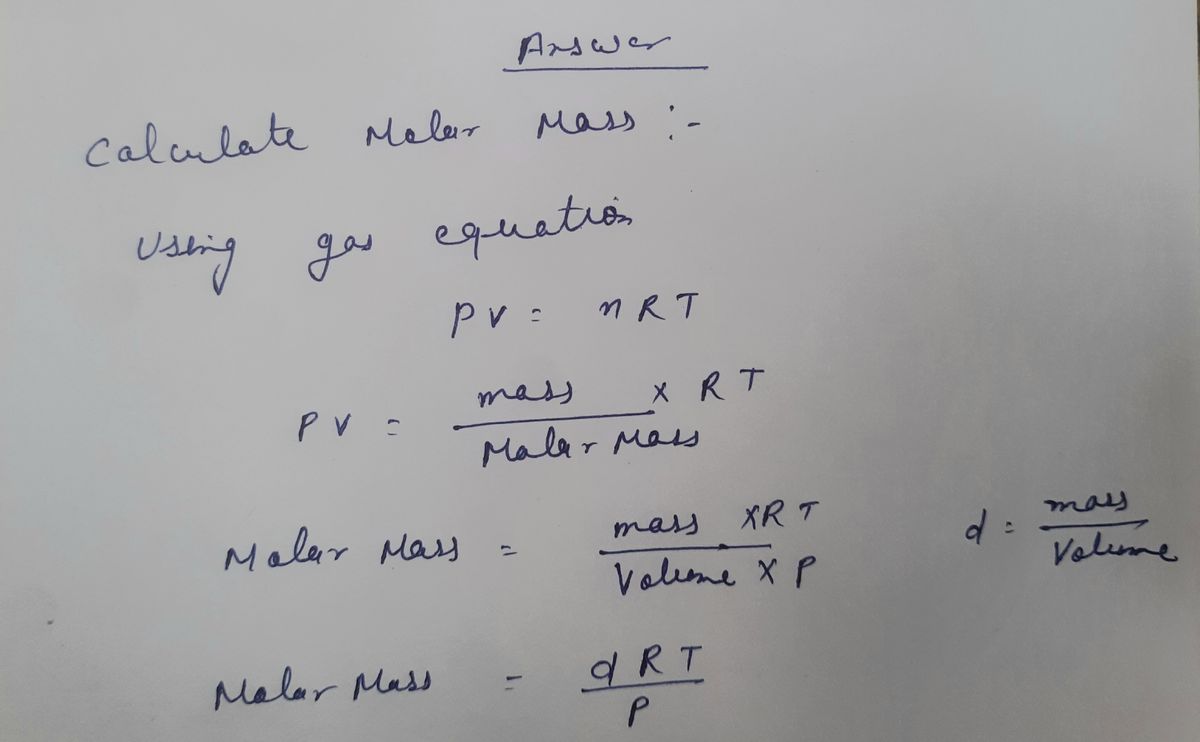 Answer
Calculate Molar Mass :-
Using gas equation
PV = nRT
PV = mass / Molar Mass × RT
Molar Mass = mass × RT / Volume × P    d = mass / Volume
Molar Mass = dRT / P